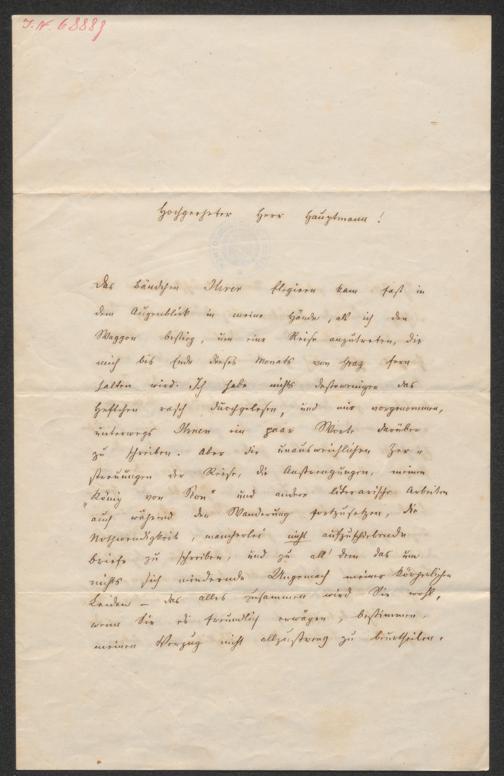 I. N. 68889
Hochgeehrter Herr Hauptmann!
Das Bändchen Ihrer Elegieen kam fast in
dem Augenblick in meine Hände, als ich den
Waggon bestieg, um eine Reise anzutreten, die
mich bis Ende dieses Monats von Graz fern
halten wird. Ich habe nichts destoweniger das
Heftchen rasch durchgelesen, und mir vorgenommen,
unterwegs Ihnen ein paar Worte darüber
zu schreiben. Aber die unausweichlichen Zer-
streuungen der Reise, die Anstrengungen, meinen
„König von Sion“ und andere literarische Arbeiten
auch während der Wanderung fortzusetzen, die
Nothwendigkeit, mancherlei nicht aufzuschiebende
Briefe zu schreiben, und zu all' dem das um
nichts sich mindernde Ungemach meiner körperlichen
Leiden – das alles zusammen wird Sie wohl,
wenn Sie es freundlich erwägen, bestimmen,
meinen Verzug nicht allzustreng zu beurtheilen.